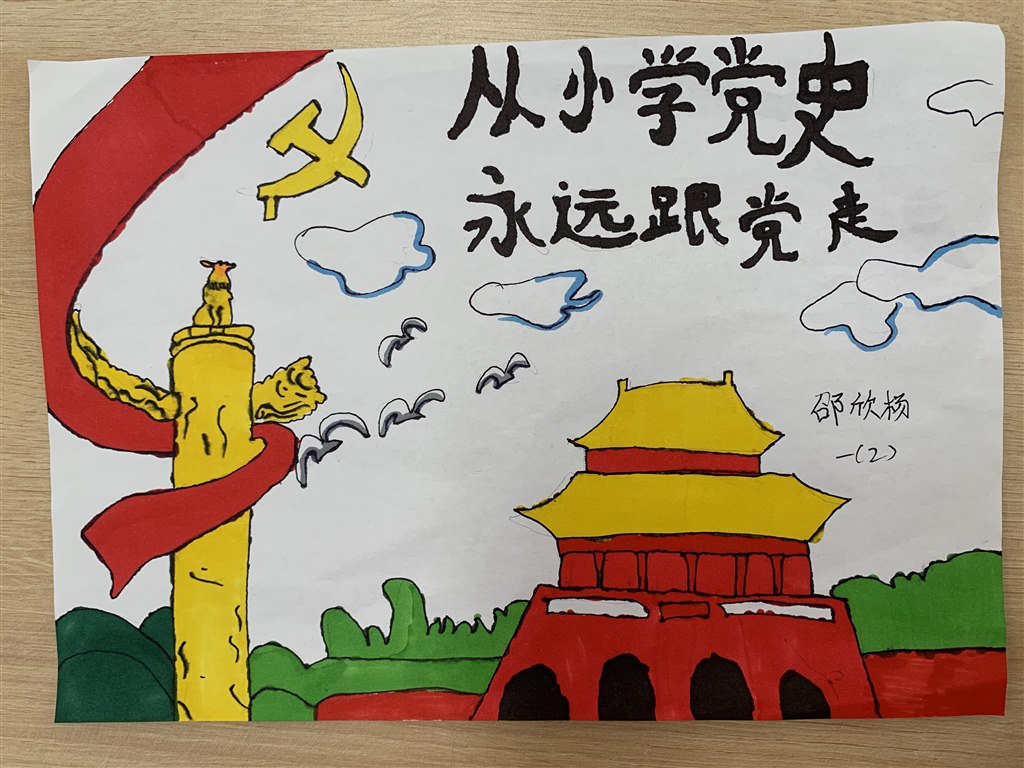 从小学党史
永远跟党走
邵欣杨
一(2)